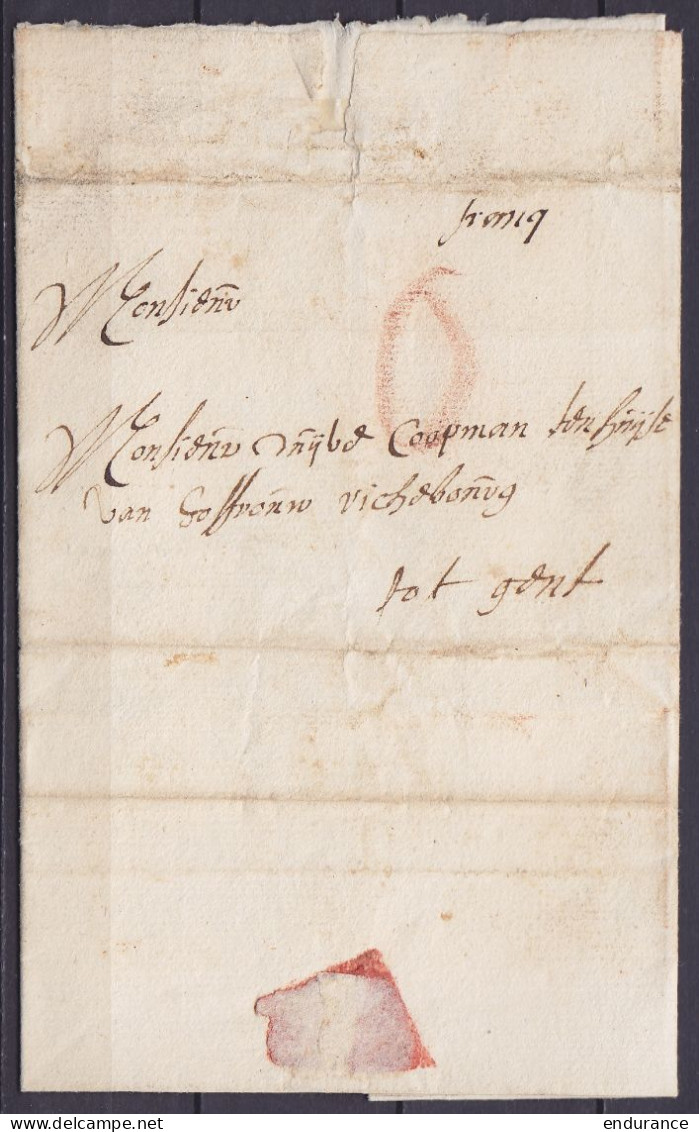 francq
6
Monsieur
Monsieur Coopman ten huijse
van Joffrouw
tot gent
www.delcampe.net
endurance